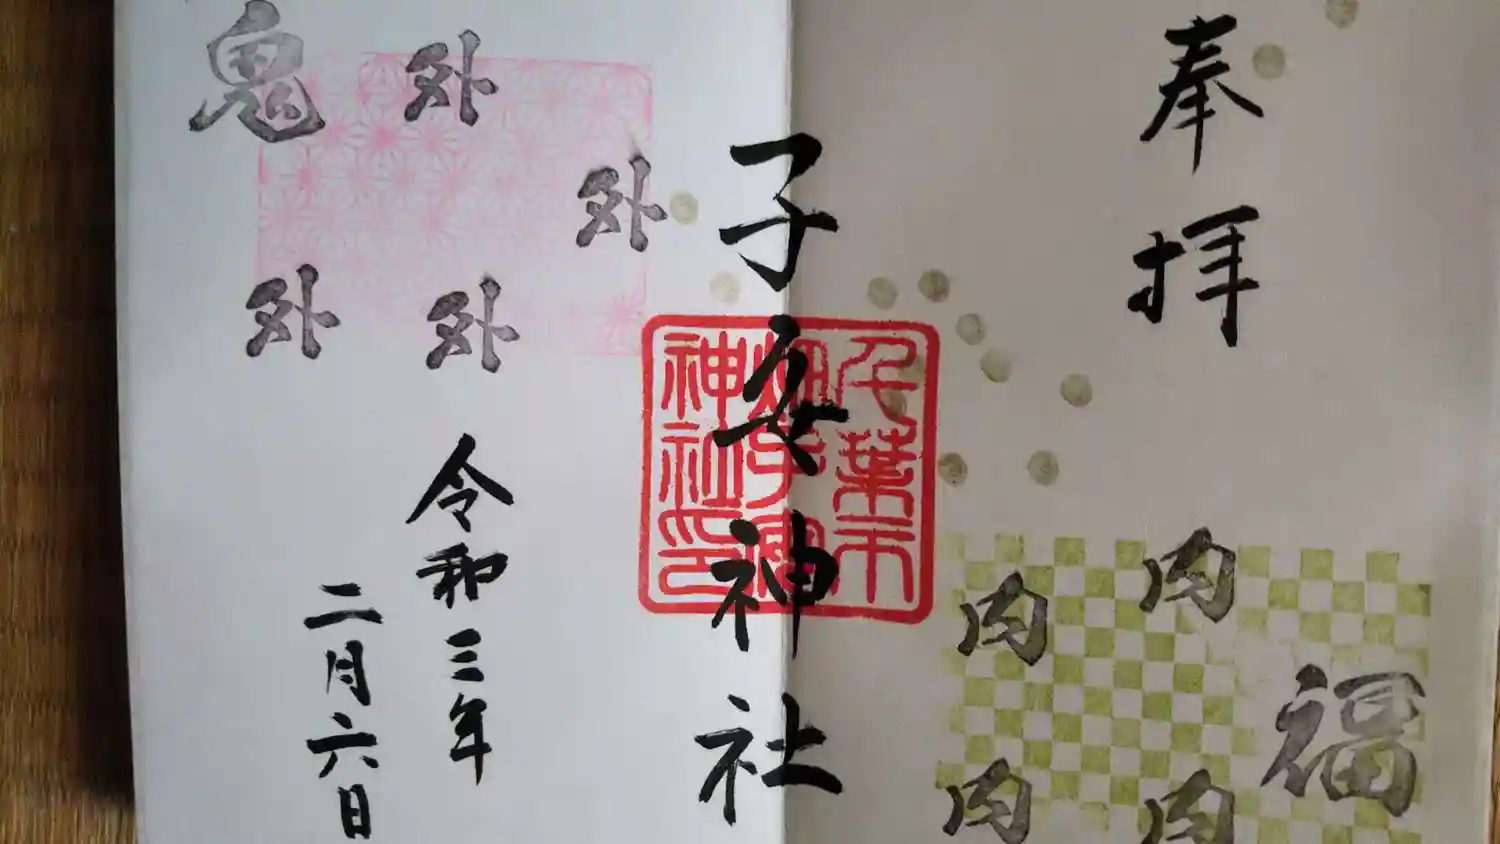 奉拝
福
内
内
内
内
子安神社
千葉市
畑子安
神社印
外
外
外
外
鬼
令和三年
二月六日